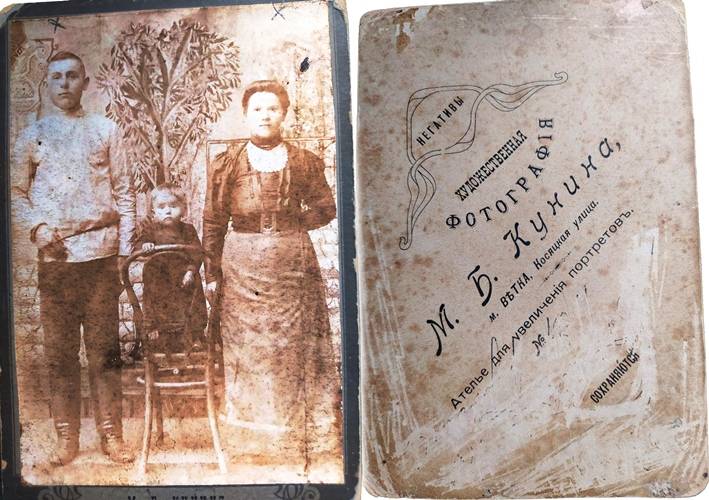 НЕГАТИВЫ
ХУДОЖЕСТВЕННАЯ
ФОТОГРАФІЯ
М. Б. Кунина,
м. ВѢТКА, Косицкая улица.
Ателье для увеличенія портретовъ.
№
СОХРАНЯЮТСЯ